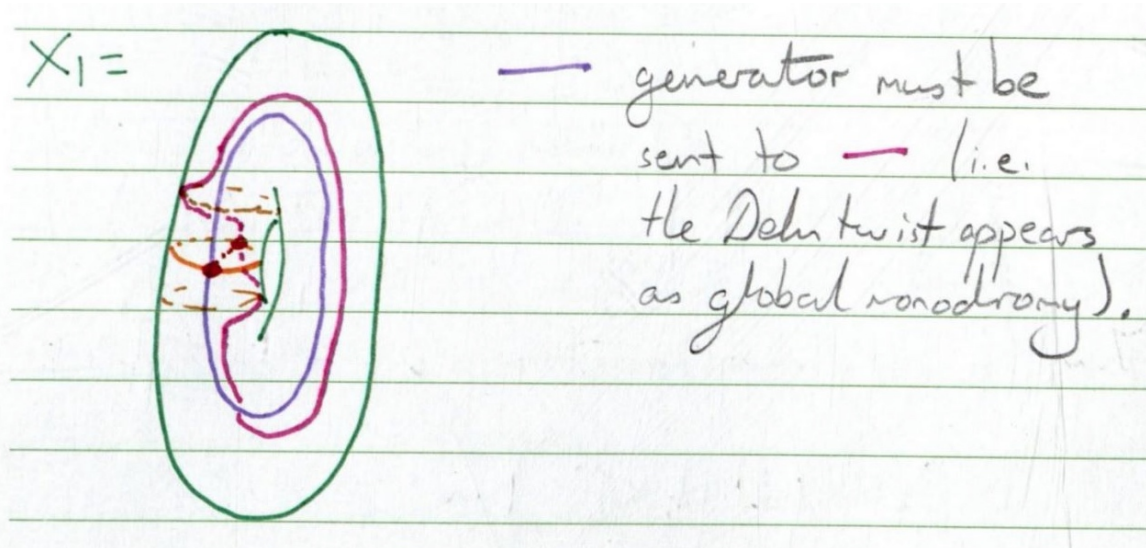 X₁ =
generator must be
sent to — (i.e.
the Dehn twist appears
as global monodromy).